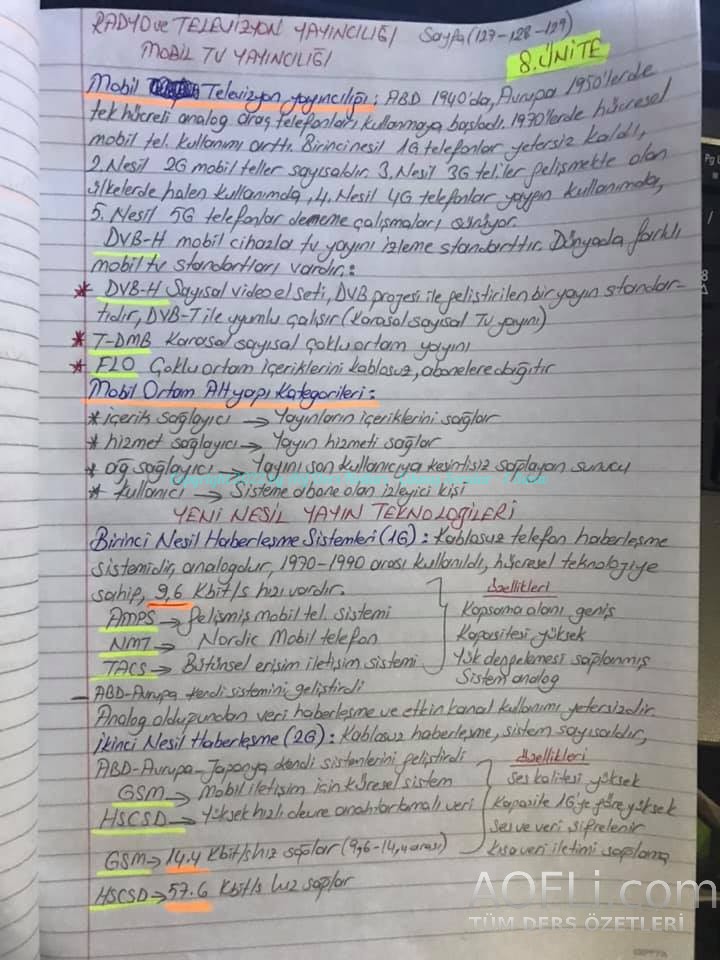 RADYO ve TELEVİZYON YAYINCILIĞI Sayfa (127-128-129)
MOBİL TV YAYINCILIĞI
8.ÜNİTE
Mobil Televizyon yayıncılığı: ABD 1940'da, Avrupa 1950'lerde
tek hücreli analog araç telefonları kullanmaya başladı. 1970'lerde hücresel
mobil tel. kullanımı arttı. Birinci nesil 1G telefonlar yetersiz kaldı,
2. Nesil 2G mobil teller sayısaldır. 3. Nesil 3G tel.ler gelişmekte olan
ülkelerde halen kullanımda, 4. Nesil 4G telefonlar yaygın kullanımda,
5. Nesil 5G telefonlar deneme çalışmaları sürüyor.
DVB-H mobil cihazla tv yayını izleme standarttır. Dünyada farklı
mobil tv standartları vardır:
* DVB-H Sayısal video el seti, DVB projesi ile geliştirilen bir yayın standar-
tıdır, DVB-T ile uyumlu çalışır (Karasal sayısal TV yayını)
* T-DMB Karasal sayısal çoklu ortam yayını
* FLO Çoklu ortam içeriklerini kablosuz, abonelere dağıtır
Mobil Ortam Altyapı Kategorileri:
* içerik sağlayıcı → Yayınların içeriklerini sağlar
* hizmet sağlayıcı → Yayın hizmeti sağlar
* ağ sağlayıcı → Yayını son kullanıcıya kesintisiz sağlayan sunucu
* kullanıcı → Sisteme abone olan izleyici kişi
YENİ NESİL YAYIN TEKNOLOĞİLERİ
Birinci Nesil Haberleşme Sistemleri (1G): Kablosuz telefon haberleşme
sistemidir, analogdur, 1970-1990 arası kullanıldı, hücresel teknolojiye
sahip, 9,6 Kbit/s hızı vardır. özellikleri
AMPS → gelişmiş mobil tel. sistemi Kapsama alanı geniş
NMT → Nordic Mobil telefon Kapasitesi yüksek
TACS → Bütünsel erişim iletişim sistemi Yük dengelemesi sağlanmış
Sistem analog
- ABD-Avrupa kendi sistemini geliştirdi
Analog olduğundan veri haberleşme ve etkin kanal kullanımı yetersizdir.
İkinci Nesil Haberleşme (2G): Kablosuz haberleşme, sistem sayısaldır,
ABD-Avrupa-Japonya kendi sistemlerini geliştirdi özellikleri
GSM → Mobil iletişim için küresel sistem Ses kalitesi yüksek
HSCSD → Yüksek hızlı devre anahtarlamalı veri Kapasite 1G'ye göre yüksek
Ses ve veri şifrelenir
GSM → 14.4 Kbit/s hız sağlar (9,6-14,4 arası) Kısa veri iletimi sağlama
HSCSD → 57.6 Kbit/s hız sağlar
AOFLi.com
TÜM DERS ÖZETLERİ